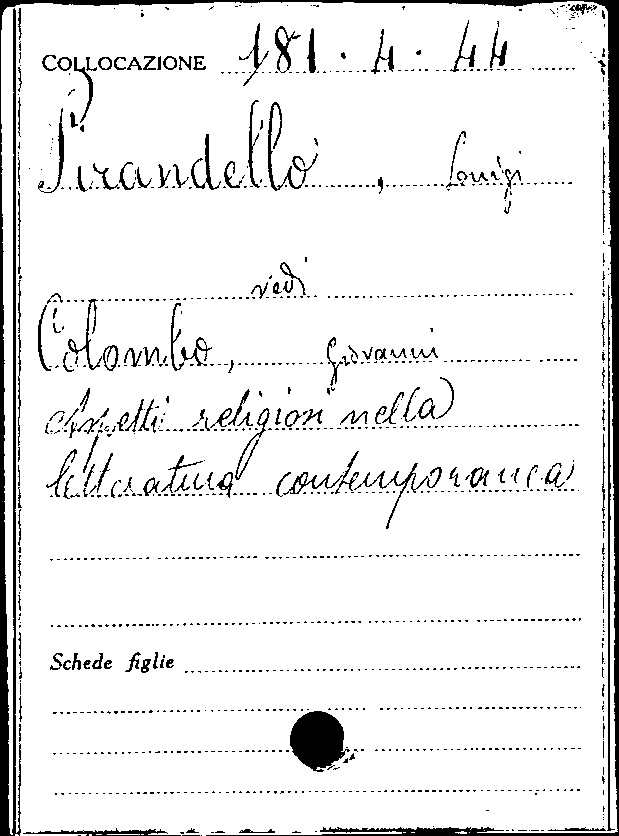 COLLOCAZIONE 181. 4. 44
Pirandello, Luigi
vedi
Colombo, Giovanni
Aspetti religiosi nella
letteratura contemporanea
Schede figlie